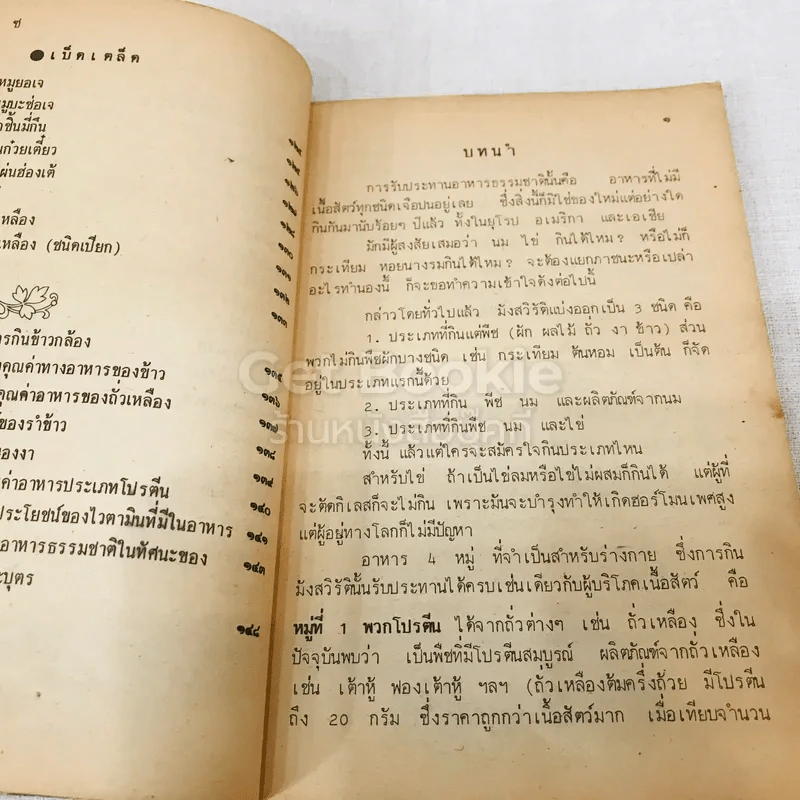 ช
●เบ็ดเตล็ด
หมูยอเจ
มูบะช่อเจ
าชิ้นมี่กึน
นก๋วยเตี๋ยว
ผ่นฮ่องเต้
เหลือง
เหลือง (ชนิดเปียก)
ารกินข้าวกล้อง
งคุณค่าทางอาหารของข้าว
คุณค่าอาหารของถั่วเหลือง
ช์ของรำข้าว
องงา
ค่าอาหารประเภทโปรตีน
ประโยชน์ของไวตามินที่มีในอาหาร
อาหารธรรมชาติในทัศนะของ
ะบุตร
๑๓๐
๑๓๑
๑๓๒
๑๓๓
๑๓๕
๑๓๖
๑๓๗
๑๓๘
๑๓๙
๑๔๐
๑๔๑
๑๔๓
๑๔๘
๑
บทนำ
การรับประทานอาหารธรรมชาตินั้นคือ อาหารที่ไม่มี
เนื้อสัตว์ทุกชนิดเจือปนอยู่เลย ซึ่งสิ่งนี้ก็มิใช่ของใหม่แต่อย่างใด
กินกันมานับร้อยๆ ปีแล้ว ทั้งในยุโรป อเมริกา และเอเชีย
มักมีผู้สงสัยเสมอว่า นม ไข่ กินได้ไหม? หรือไม่ก็
กระเทียม หอยนางรมกินได้ไหม? จะต้องแยกภาชนะหรือเปล่า
อะไรทำนองนี้ ก็จะขอทำความเข้าใจดังต่อไปนี้
กล่าวโดยทั่วไปแล้ว มังสวิรัติแบ่งออกเป็น 3 ชนิด คือ
1. ประเภทที่กินแต่พืช (ผัก ผลไม้ ถั่ว งา ข้าว) ส่วน
พวกไม่กินพืชผักบางชนิด เช่น กระเทียม ต้นหอม เป็นต้น ก็จัด
อยู่ในประเภทแรกนี้ด้วย
2. ประเภทที่กิน พืช นม และผลิตภัณฑ์จากนม
3. ประเภทที่กินพืช นม และไข่
ทั้งนี้ แล้วแต่ใครจะสมัครใจกินประเภทไหน
สำหรับไข่ ถ้าเป็นไข่ลมหรือไข่ไม่ผสมก็กินได้ แต่ผู้ที่
จะตัดกิเลสก็จะไม่กิน เพราะมันจะบำรุงทำให้เกิดฮอร์โมนเพศสูง
แต่ผู้อยู่ทางโลกก็ไม่มีปัญหา
อาหาร 4 หมู่ ที่จำเป็นสำหรับร่างกาย ซึ่งการกิน
มังสวิรัตินั้นรับประทานได้ครบเช่นเดียวกับผู้บริโภคเนื้อสัตว์ คือ
หมู่ที่ 1 พวกโปรตีน ได้จากถั่วต่างๆ เช่น ถั่วเหลือง ซึ่งใน
ปัจจุบันพบว่า เป็นพืชที่มีโปรตีนสมบูรณ์ ผลิตภัณฑ์จากถั่วเหลือง
เช่น เต้าหู้ ฟองเต้าหู้ ฯลฯ (ถั่วเหลืองต้มครึ่งถ้วย มีโปรตีน
ถึง 20 กรัม ซึ่งราคาถูกกว่าเนื้อสัตว์มาก เมื่อเทียบจำนวน
Get Bookie